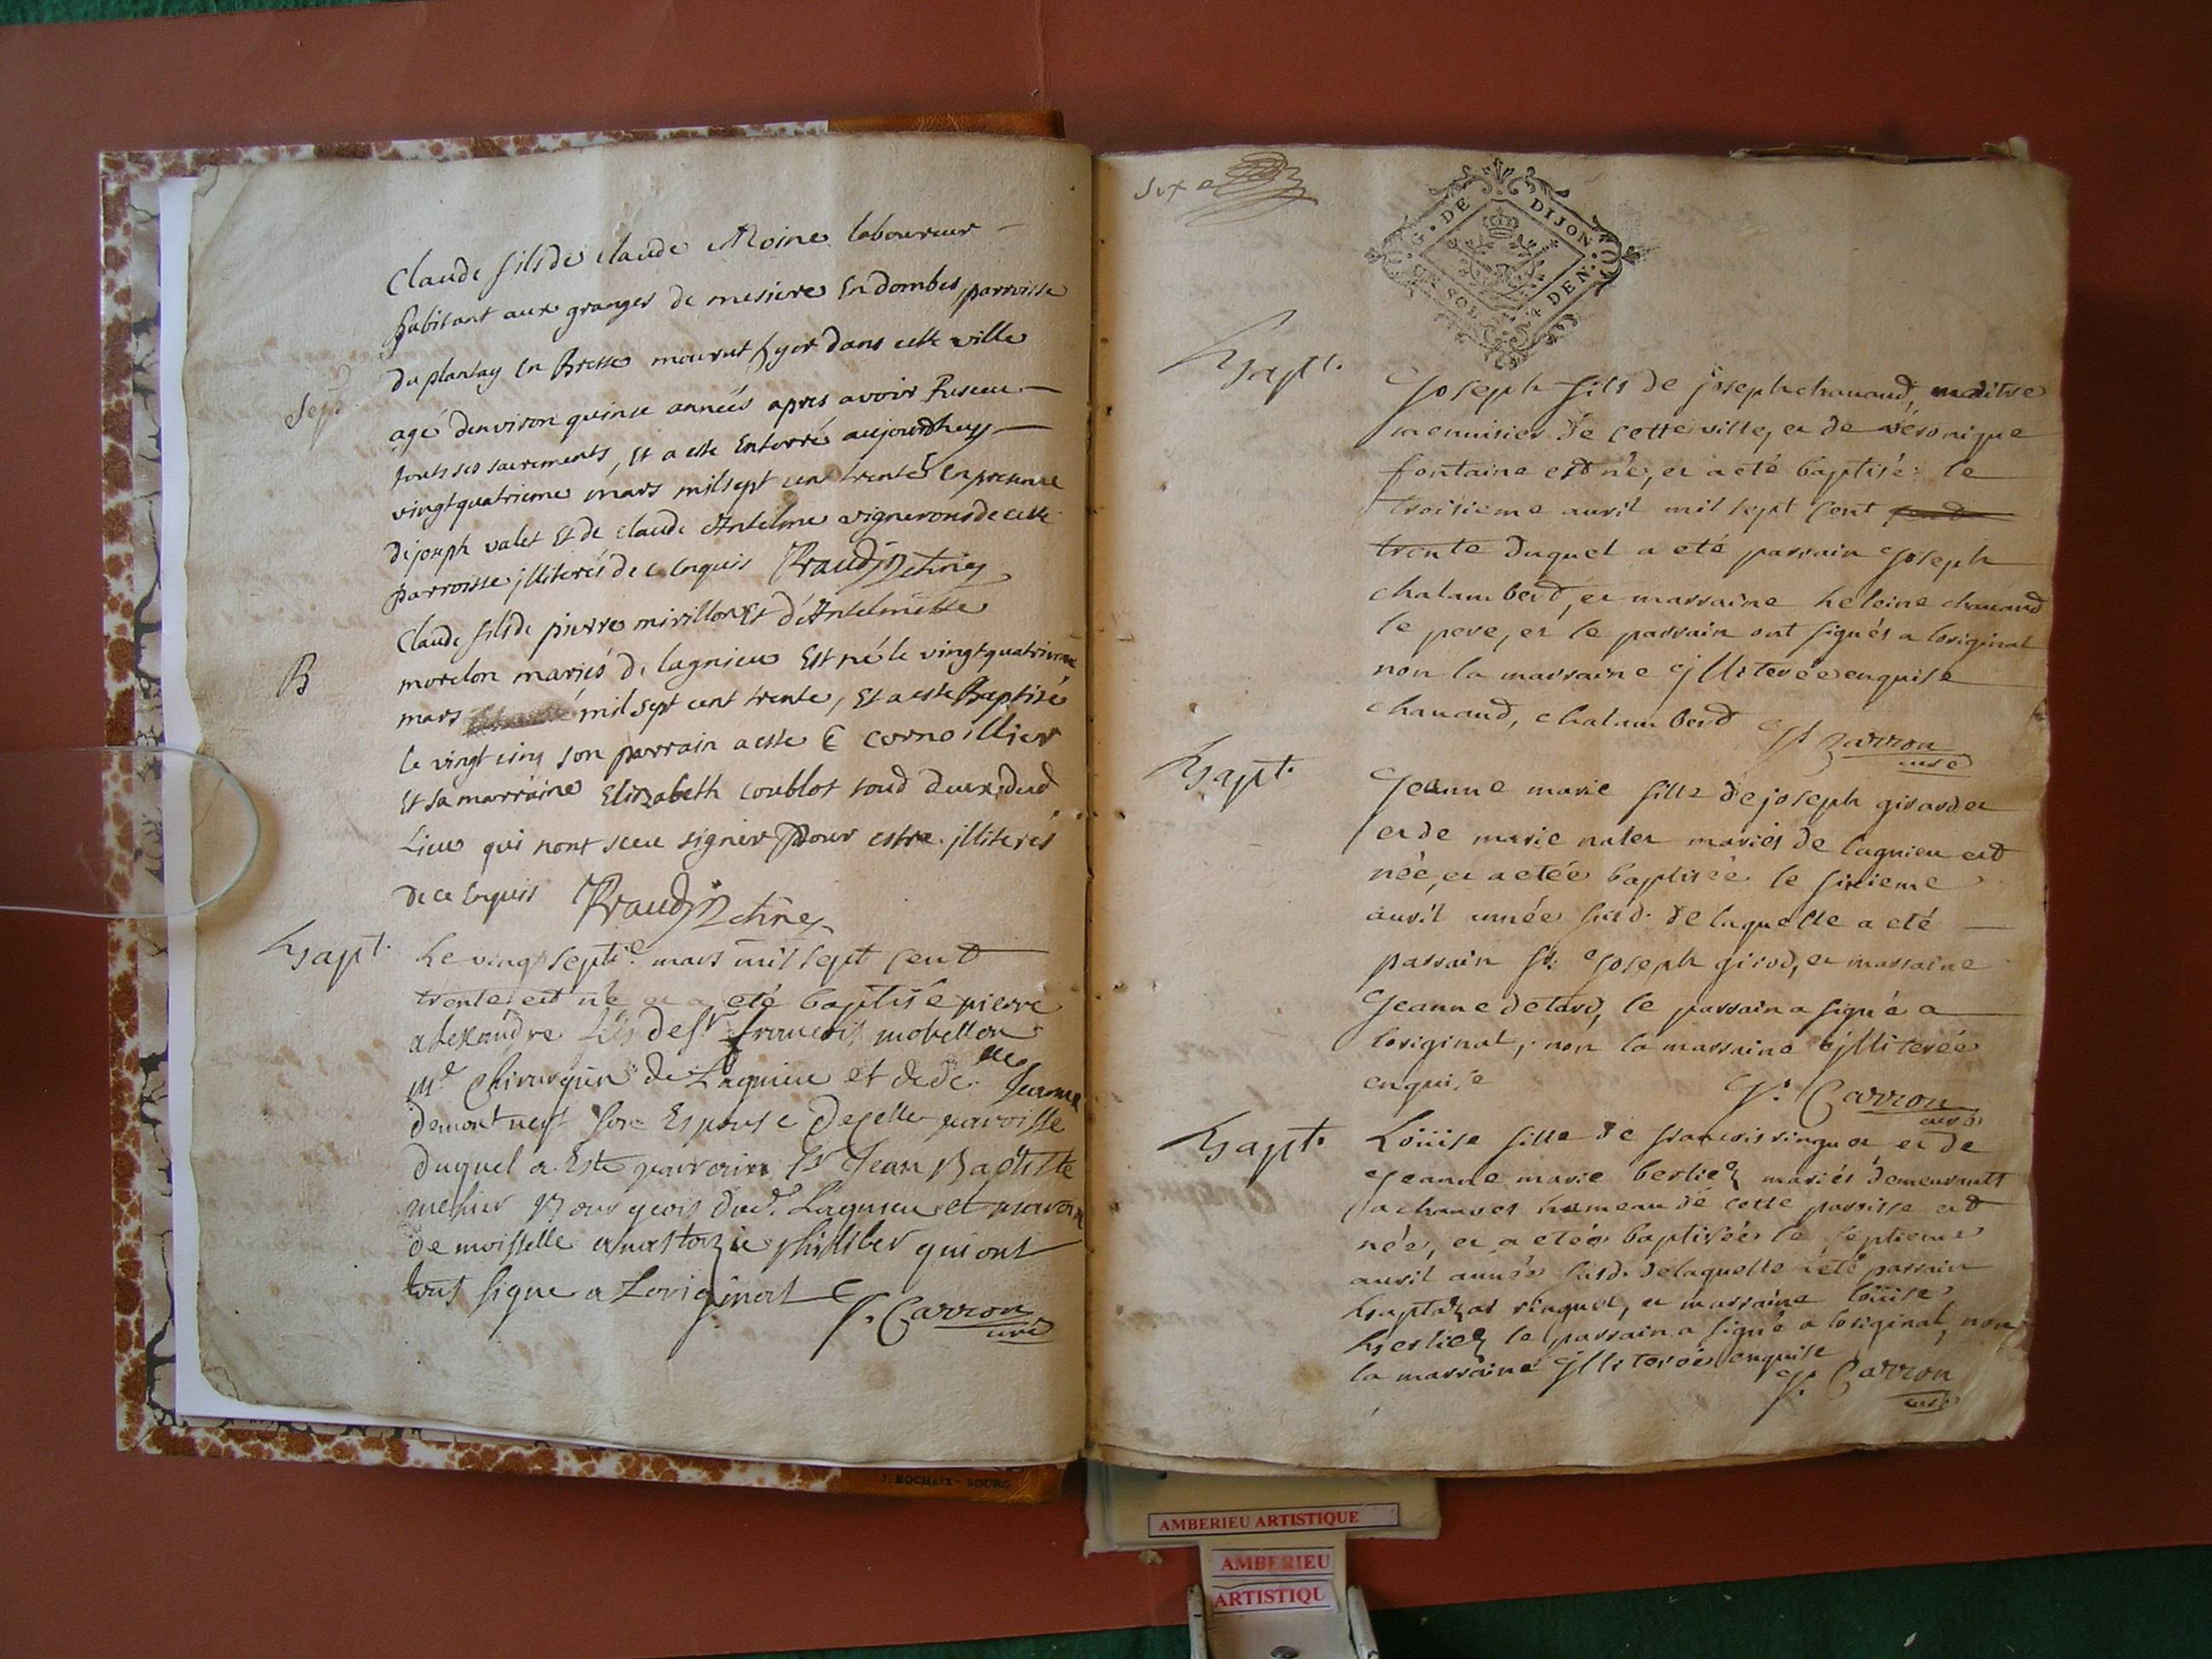 Claude fils de claude Moine laboureur
habitant aux granges de mesiere En dombes parroisse
Sep. du plantay En Bresse mourut hyer dans cette ville
agé denviron quinse années apres avoir Receu
touts ses sacrements, Et a este Enterré aujourdhuy
vingtquatrieme mars milsept cent trente En presence
de joseph valet Et de claude Antelme vignerons de cette
parroisse jlliterés de ce Enquis
Claude fils de pierre mirillon Et d'Antelmette
B morelon mariés de lagnieu Est né le vingtquatrieme
mars mil sept cent trente, Et a este Baptisé
le vingt cinq son parrain a este C cornoillier
Et sa marraine Elizabeth coublot toud deux dud
Lieu qui nont sceu signer Pour estre jlliterés
de ce Enquis
Bapt. Le vingt septie. mars mil sept cent
trente est né et a eté baptisé pierre
alexandre fils de sr. francois mobellon
me. Chirurgien de Lagnieu et de de. Jeanne
demontneuf son Espouse de cette paroisse
duquel a Este parrain sr Jean Baptiste
mehier Bourgeois dud. Lagnieu et maraine
demoisselle anastazie philiber qui ont
tous signe a Loriginal
P. Carron
curé
six e
G. DE DIJON
UN SOL 4 DEN.
Bapt. Joseph fils de joseph chanaud, maitre
menuisier de cette ville, et de véronique
fontaine est né, et a eté baptisé le
troisieme avril mil sept cent
trente duquel a eté parrain Joseph
chalamberd, et marraine heleine chanaud
le pere, et le parrain ont signés a loriginal
non la marraine jlliterée enquise
chanaud, chalamberd P. Carron
curé
Bapt. Jeanne marie fille de joseph girardet
et de marie nalet mariés de lagnieu est
née, et a etée baptisée le sixieme
avril année susd. de laquelle a eté
parrain sr. Joseph girod, et marraine
Jeanne detard, le parrain a signé a
loriginal, non la marraine jlliterée
enquise P. Carron
curé
Bapt. Loüise fille de francois ringuet et de
Jeanne marie berliez mariés demeurants
a chanves hameau de cette parrisse est
née, et a etée baptisée le septieme
avril année susd. delaquelle a eté parrain
baptazar ringuet, et marraine loüise
berliez le parrain a signé a loriginal, non
la marraine jlliterée enquise
P. Carron
curé
J. ROCHAIX - BOURG
AMBERIEU ARTISTIQUE
AMBERIEU
ARTISTIQU